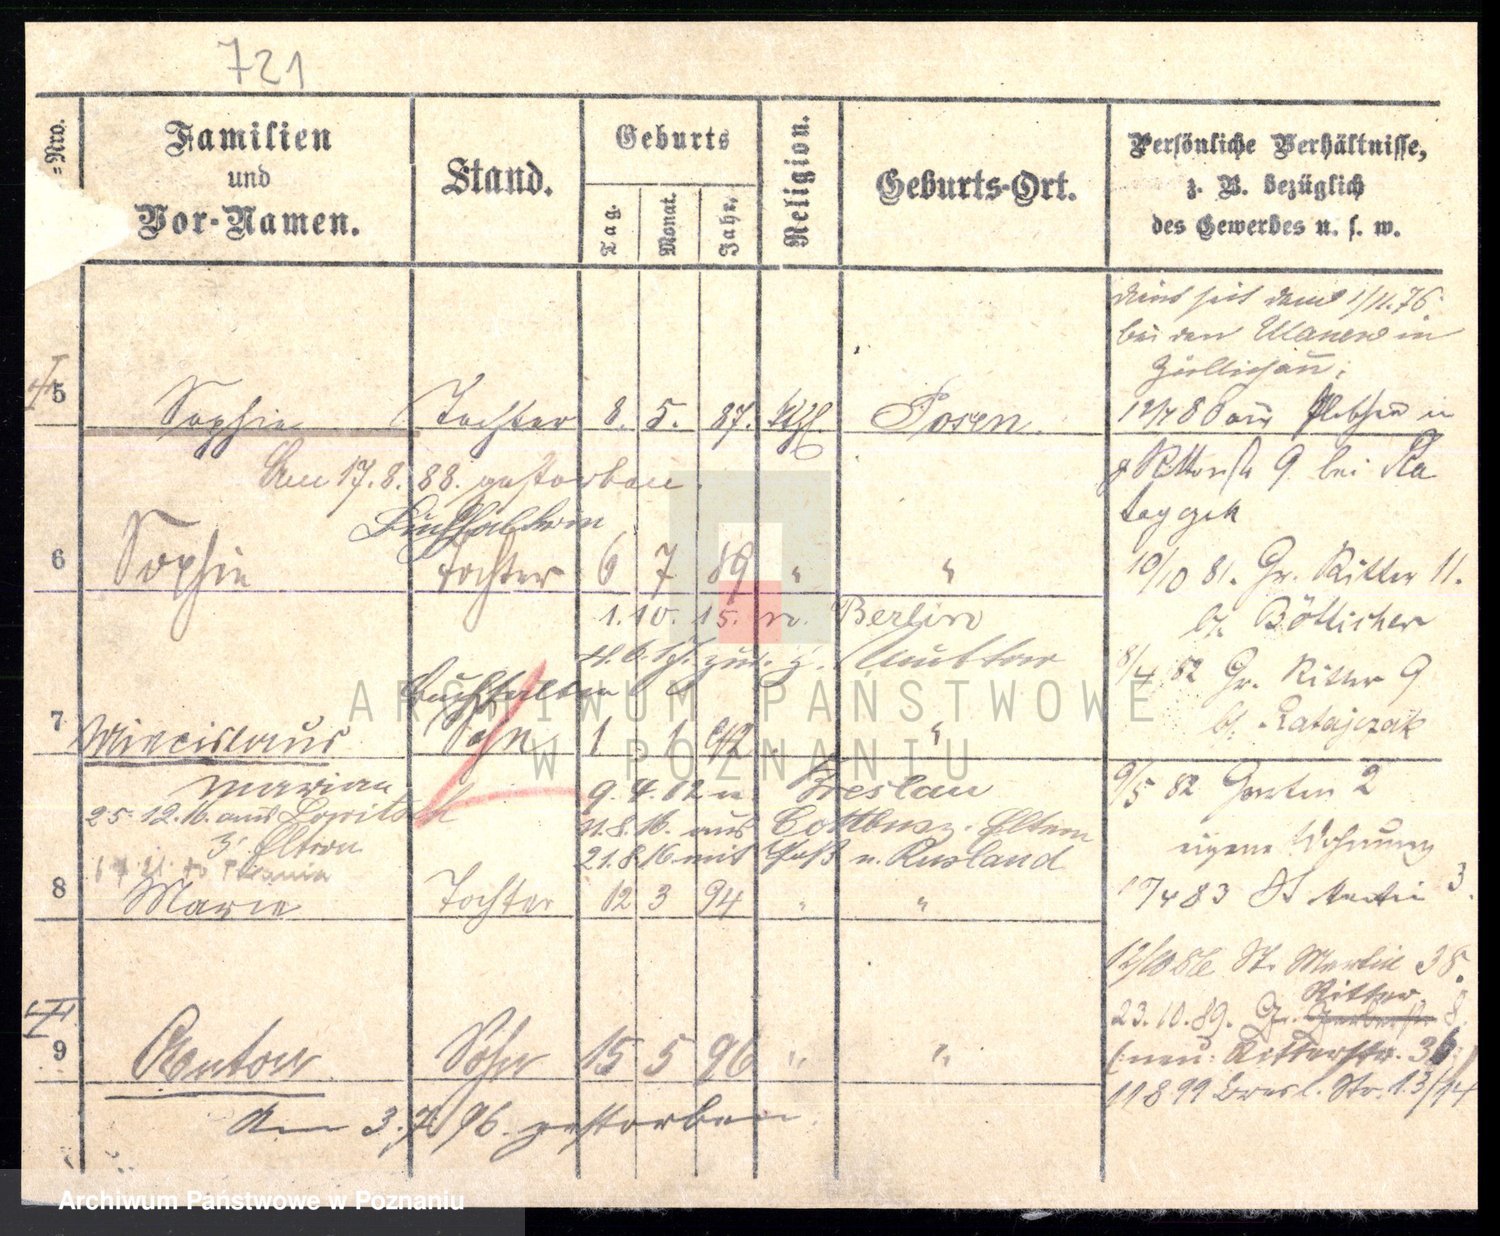 721
-Nro.
Familien
und
Vor-Namen.
Stand.
Geburts
Tag.
Monat.
Jahr.
Religion.
Geburts-Ort.
Persönliche Verhältnisse,
z. B. bezüglich
des Gewerbes u. s. w.
dient seit dem 1/11.76.
bei den Ulanen in
Züllichau;
5 Sophie Tochter 8. 5. 87. Kthl. Posen.
Am 17.8.88. gestorben.
Buchhalterin
6 Sophie Tochter 6 7 89 " "
1.10.15. n. Berlin
z. Mutter
Buchhalter
7 Miecislaus Sohn 1 1 92 "
Marian
9.4.12 n. Breslau
25.12.16. aus
z. Eltern
21.8.16. aus Cottbus z. Eltern
21.8.16 mit Paß n. Rusland
8 Marie Tochter 12 3 94 " "
9 Anton Sohn 15 5 96 " "
Am 3.7.96. gestorben.
12/4 80 aus in
9 bei
10/10 81. Gr. Ritter 11.
b. Bötticher
8/4 82 Gr. Ritter 9
b. Ratajczak
9/5 82 Garten 2
eigene Wohnung
17/4 83 St Martin 3.
12/10 86 St. Martin 38.
Ritter
23.10.89. Gr. Gerberstr. 8.
(neu: Ritterstr. 36.
11 8 99 Bresl. Str. 13/14
ARCHIWUM PAŃSTWOWE
W POZNANIU
Archiwum Państwowe w Poznaniu